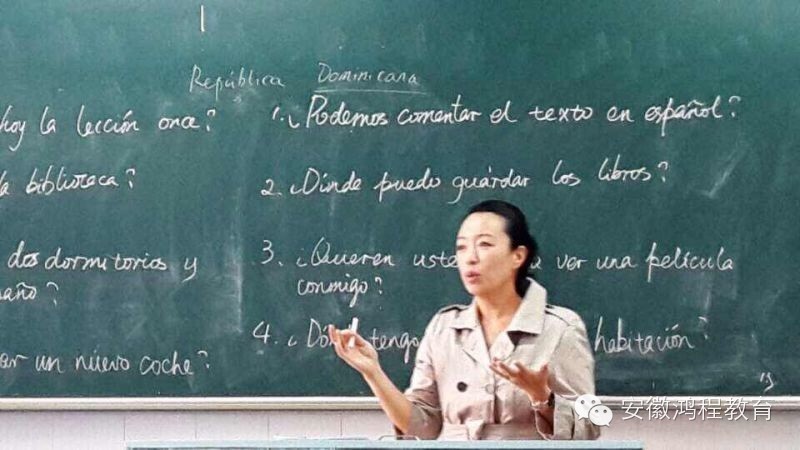 República Dominicana
hoy la lección once?
la biblioteca?
dos dormitorios y
año?
ar un nuevo coche?
1. ¿Podemos comentar el texto en español?
2. ¿Dónde puedo guardar los libros?
3. ¿Quieren uste a ver una película
conmigo?
4. ¿Dón tengo habitación?
安徽鸿程教育